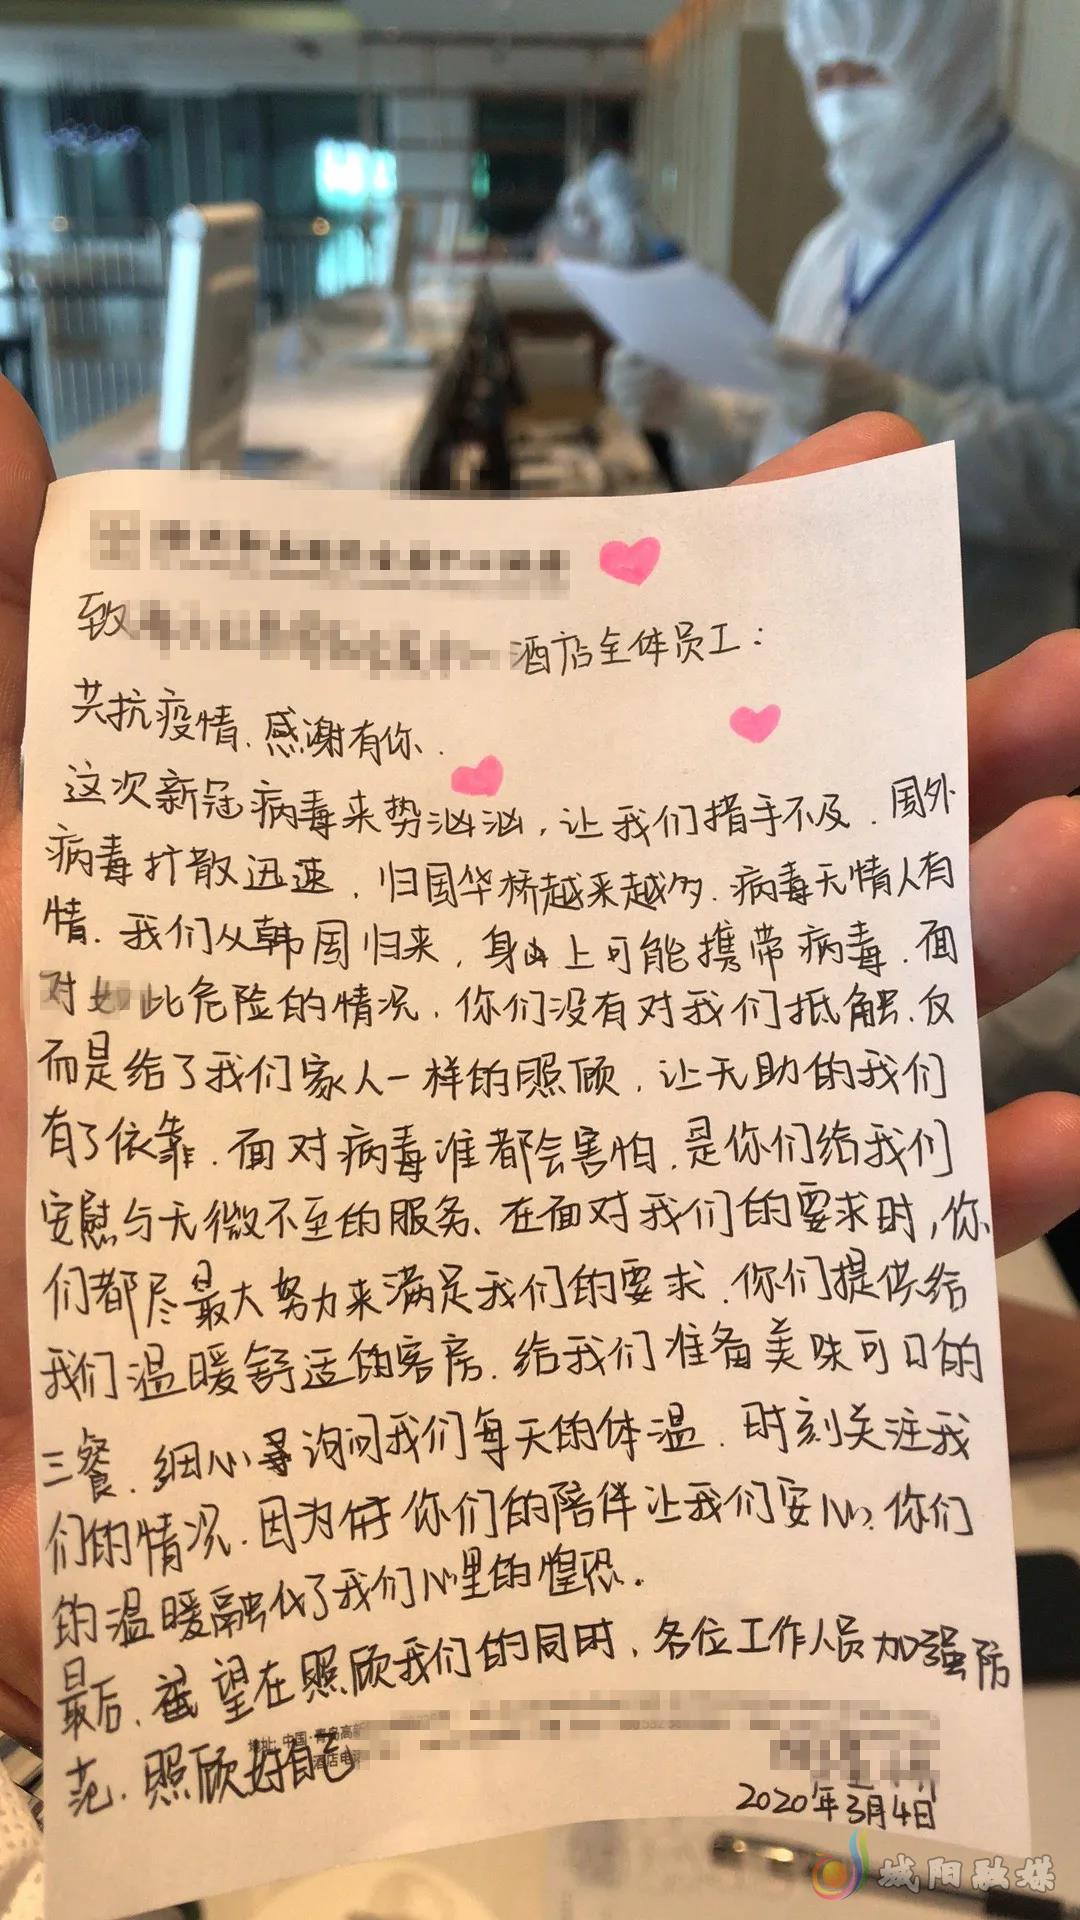 致
酒店全体员工：
共抗疫情.感谢有你.
这次新冠病毒来势汹汹,让我们措手不及.国外
病毒扩散迅速.归国华桥越来越多.病毒无情人有
情.我们从韩国归来,身上可能携带病毒.面
对如此危险的情况.你们没有对我们抵触.反
而是给了我们家人一样的照顾.让无助的我们
有了依靠.面对病毒谁都会害怕.是你们给我们
安慰与无微不至的服务.在面对我们的要求时,你
们都尽最大努力来满足我们的要求.你们提供给
我们温暖舒适的客房.给我们准备美味可口的
三餐.细心寻询问我们每天的体温.时刻关注我
们的情况.因为你们的陪伴让我们安心.你们
的温暖融化了我们心里的惶恐.
最后.希望在照顾我们的同时.各位工作人员加强防
范.照顾好自己
地址:中国·青岛高新
酒店电
2020年3月4日
城阳融媒